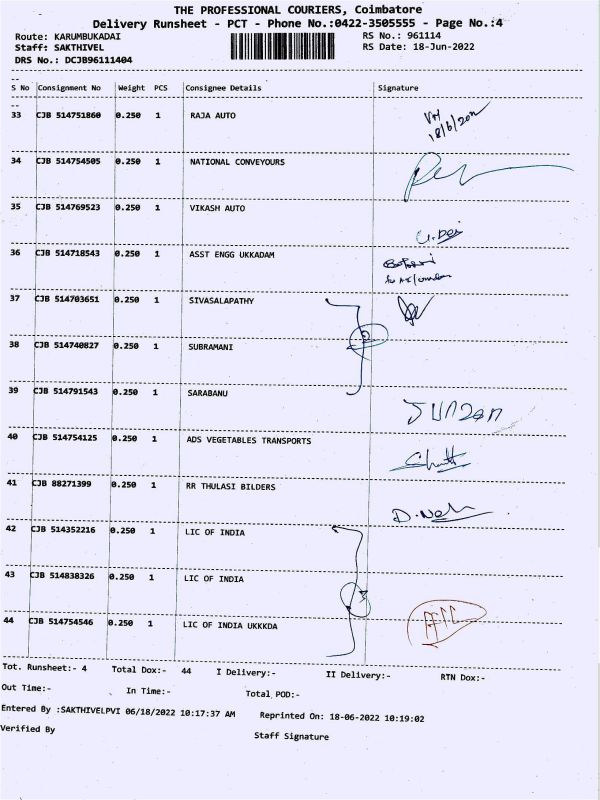 THE PROFESSIONAL COURIERS, Coimbatore
Delivery Runsheet - PCT - Phone No.:0422-3505555 - Page No.:4
Route: KARUMBUKADAI RS No.: 961114
Staff: SAKTHIVEL RS Date: 18-Jun-2022
DRS No.: DCJB96111404
S No Consignment No Weight PCS Consignee Details Signature
33 CJB 514751860 0.250 1 RAJA AUTO
18/6/2022
34 CJB 514754505 0.250 1 NATIONAL CONVEYOURS
35 CJB 514769523 0.250 1 VIKASH AUTO
36 CJB 514718543 0.250 1 ASST ENGG UKKADAM
37 CJB 514703651 0.250 1 SIVASALAPATHY
38 CJB 514740827 0.250 1 SUBRAMANI
39 CJB 514791543 0.250 1 SARABANU
40 CJB 514754125 0.250 1 ADS VEGETABLES TRANSPORTS
41 CJB 88271399 0.250 1 RR THULASI BILDERS
42 CJB 514352216 0.250 1 LIC OF INDIA
43 CJB 514838326 0.250 1 LIC OF INDIA
44 CJB 514754546 0.250 1 LIC OF INDIA UKKKDA
Tot. Runsheet:- 4 Total Dox:- 44 I Delivery:- II Delivery:- RTN Dox:-
Out Time:- In Time:- Total POD:-
Entered By :SAKTHIVELPVI 06/18/2022 10:17:37 AM Reprinted On: 18-06-2022 10:19:02
Verified By Staff Signature